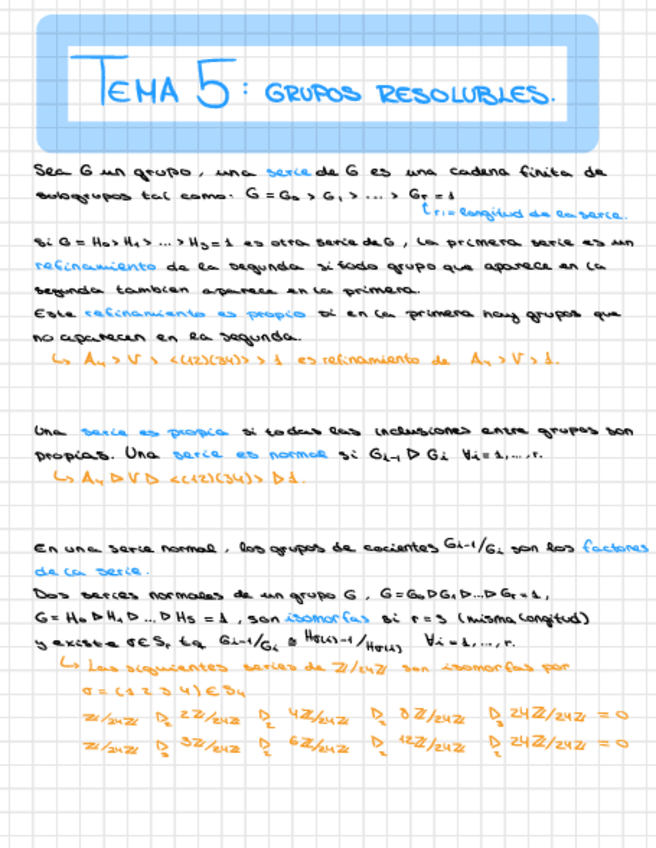 TEMA 5: GRUPOS RESOLUBLES.
Sea G un grupo, una serie de G es una cadena finita de
subgrupos tal como: G = G₀ > G₁ > ... > Gᵣ = 1
r := longitud de la serie.
Si G = H₀ > H₁ > ... > Hₛ = 1 es otra serie de G, la primera serie es un
refinamiento de la segunda si todo grupo que aparece en la
segunda tambien aparece en la primera.
Este refinamiento es propio si en la primera hay grupos que
no aparecen en la segunda.
↳ A₄ > V > <(12)(34)> > 1 es refinamiento de A₄ > V > 1.
Una serie es propia si todas las inclusiones entre grupos son
propias. Una serie es normal si Gᵢ₋₁ ▷ Gᵢ ∀i = 1, ..., r.
↳ A₄ ▷ V ▷ <(12)(34)> ▷ 1.
En una serie normal, los grupos de cocientes Gᵢ₋₁/Gᵢ son los factores
de la serie.
Dos series normales de un grupo G, G = G₀ ▷ G₁ ▷ ... ▷ Gᵣ = 1,
G = H₀ ▷ H₁ ▷ ... ▷ Hₛ = 1, son isomorfas si r = s (misma longitud)
y existe σ ∈ Sᵣ tq Gᵢ₋₁/Gᵢ ≅ H_σ(i)-1/H_σ(i) ∀i = 1, ..., r.
↳ Las siguientes series de ℤ/24ℤ son isomorfas por
σ = (1 2 3 4) ∈ S₄
ℤ/24ℤ ▷₂ 2ℤ/24ℤ ▷₂ 4ℤ/24ℤ ▷₂ 8ℤ/24ℤ ▷₃ 24ℤ/24ℤ = 0
ℤ/24ℤ ▷₃ 3ℤ/24ℤ ▷₂ 6ℤ/24ℤ ▷₂ 12ℤ/24ℤ ▷₂ 24ℤ/24ℤ = 0